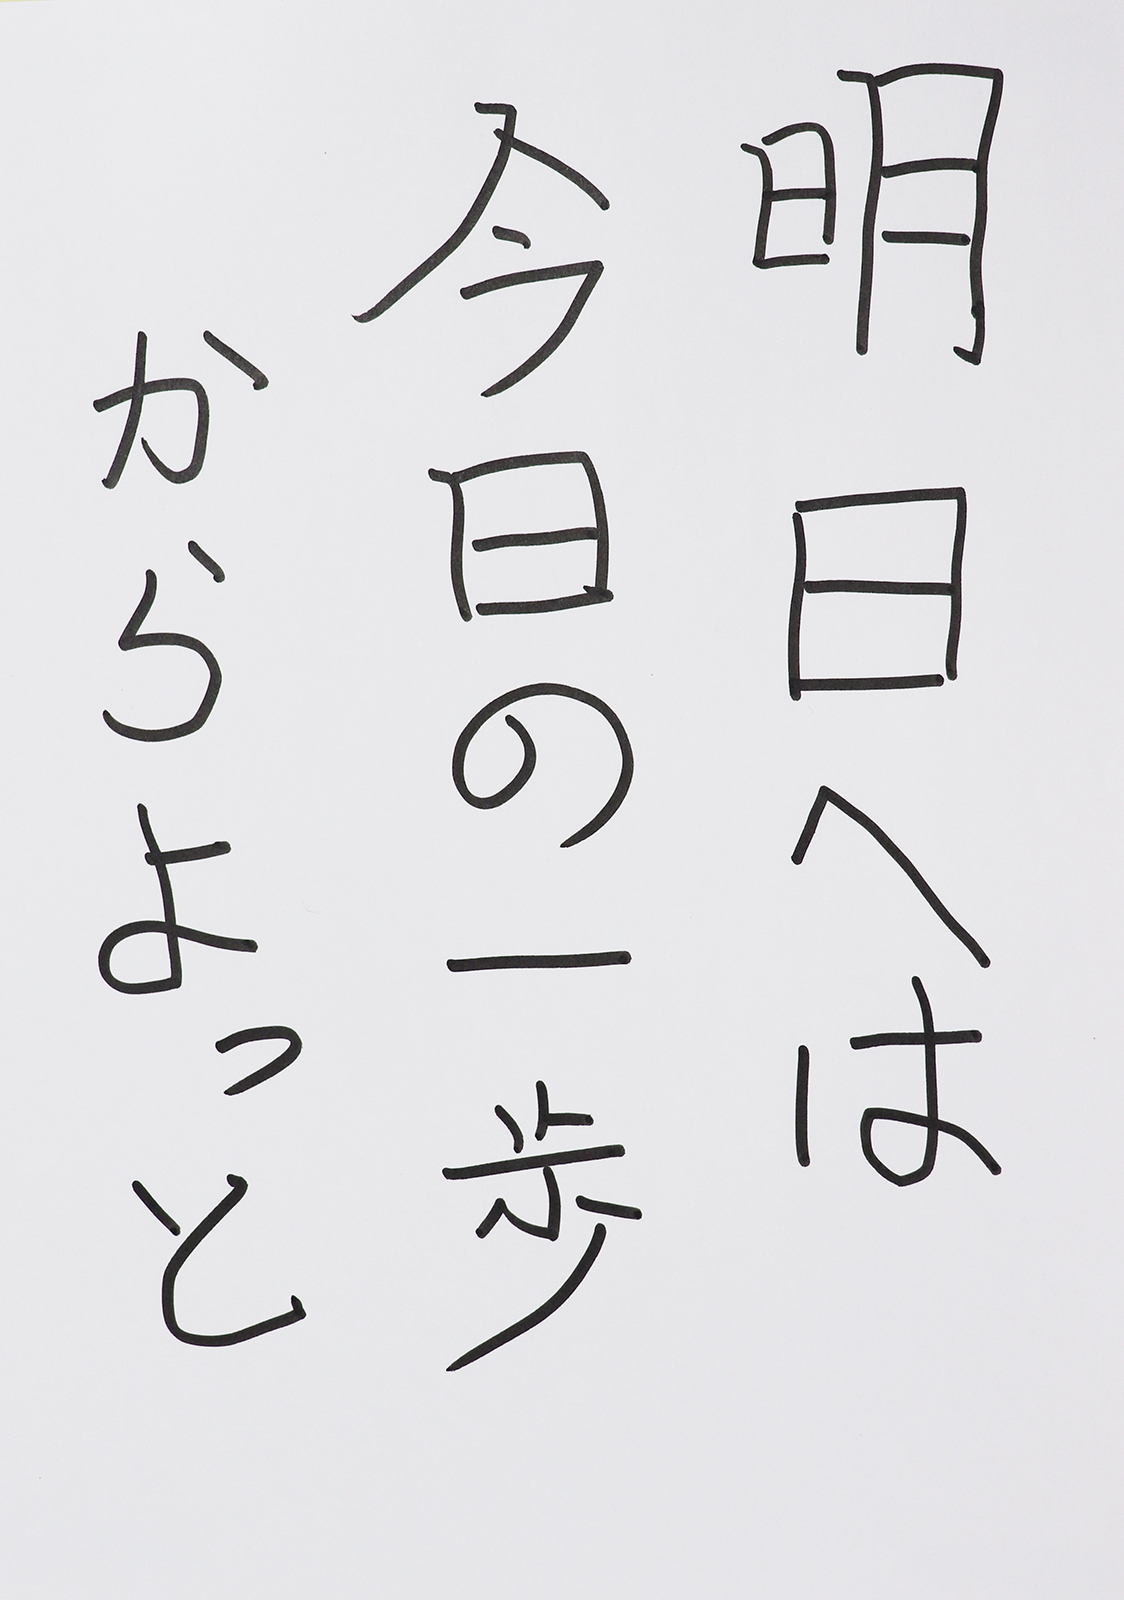 明日へは
今日の一歩
からよっと